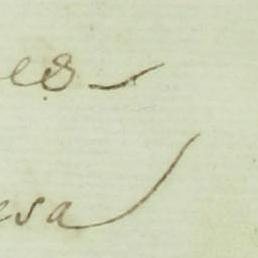 es
esa